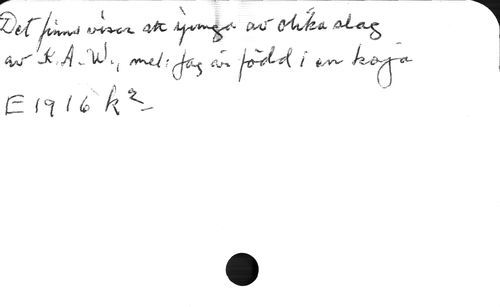 Det finns visor att sjunga av olika slag
av K.A.W., mel: Jag är född i en koja
E 1916 k2